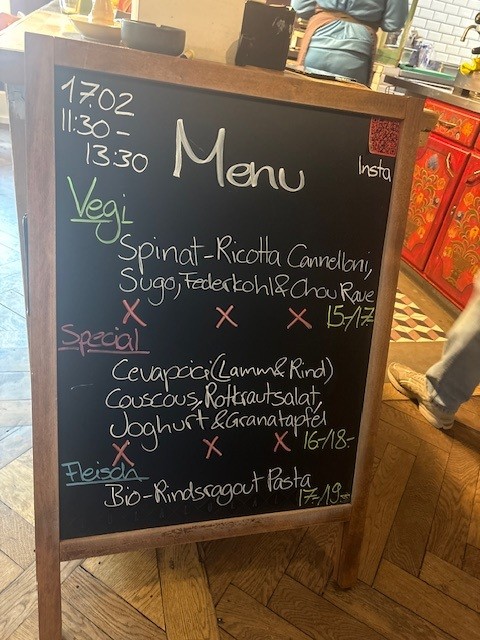 17.02
11:30 -
13:30
Menu
Insta
Vegi
Spinat-Ricotta Cannelloni,
Sugo, Federkohl & Chou Rave
X X X 15-17
Spezial
Cevapcici (Lamm & Rind)
Couscous, Rotkrautsalat,
Joghurt & Granatapfel
X X X 16-18.-
Fleisch
Bio-Rindsragout Pasta
17-19.-